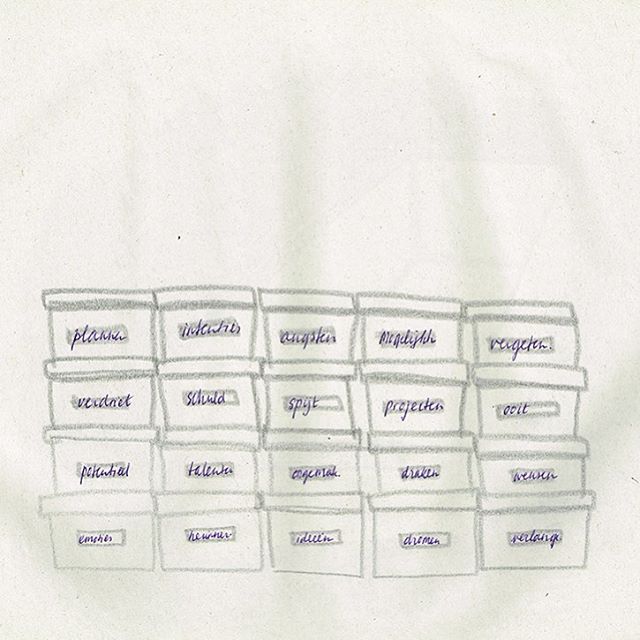 plannen intenties angsten mogelijkh vergeten
verdriet schuld spijt projecten ooit
potentieel talenten ongemak draken wensen
emoties ideeën dromen verlange